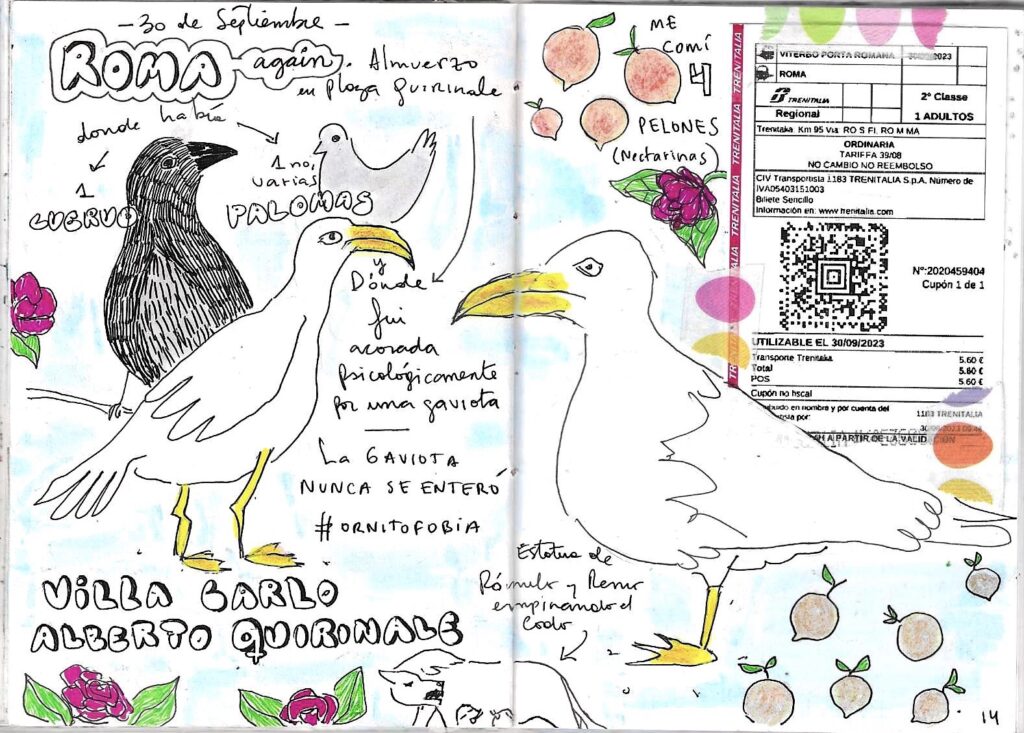 -30 de Septiembre-
ROMA again.
Almuerzo
en plaza Quirinale
donde había
1
CUERVO
1 no,
varias
PALOMAS
y
Dónde
fui
acosada
Psicológicamente
por una gaviota
La GAVIOTA
NUNCA SE ENTERÓ
#ORNITOFOBIA
VILLA CARLO
ALBERTO QUIRINALE
ME
COMÍ
4
PELONES
(Nectarinas)
Estatua de
Rómulo y Remo
empinando el
codo
14
TRENITALIA TRENITALIA TRENITALIA TRENITALIA
VITERBO PORTA ROMANA 30/09/2023
ROMA
TRENITALIA
Regional
2ª Classe
1 ADULTOS
Trenitalia. Km 95 Via: RO S FI. RO M MA
ORDINARIA
TARIFFA 39/08
NO CAMBIO NO REEMBOLSO
CIV Transportista 1183 TRENITALIA S.p.A. Número de
IVA05403151003
Billete Sencillo
Información en: www.trenitalia.com
Nº:2020459404
Cupón 1 de 1
UTILIZABLE EL 30/09/2023
Transporte Trenitalia 5.60 €
Total 5.60 €
POS 5.60 €
Cupón no fiscal
en nombre y por cuenta del
por: 1183 TRENITALIA
A PARTIR DE LA